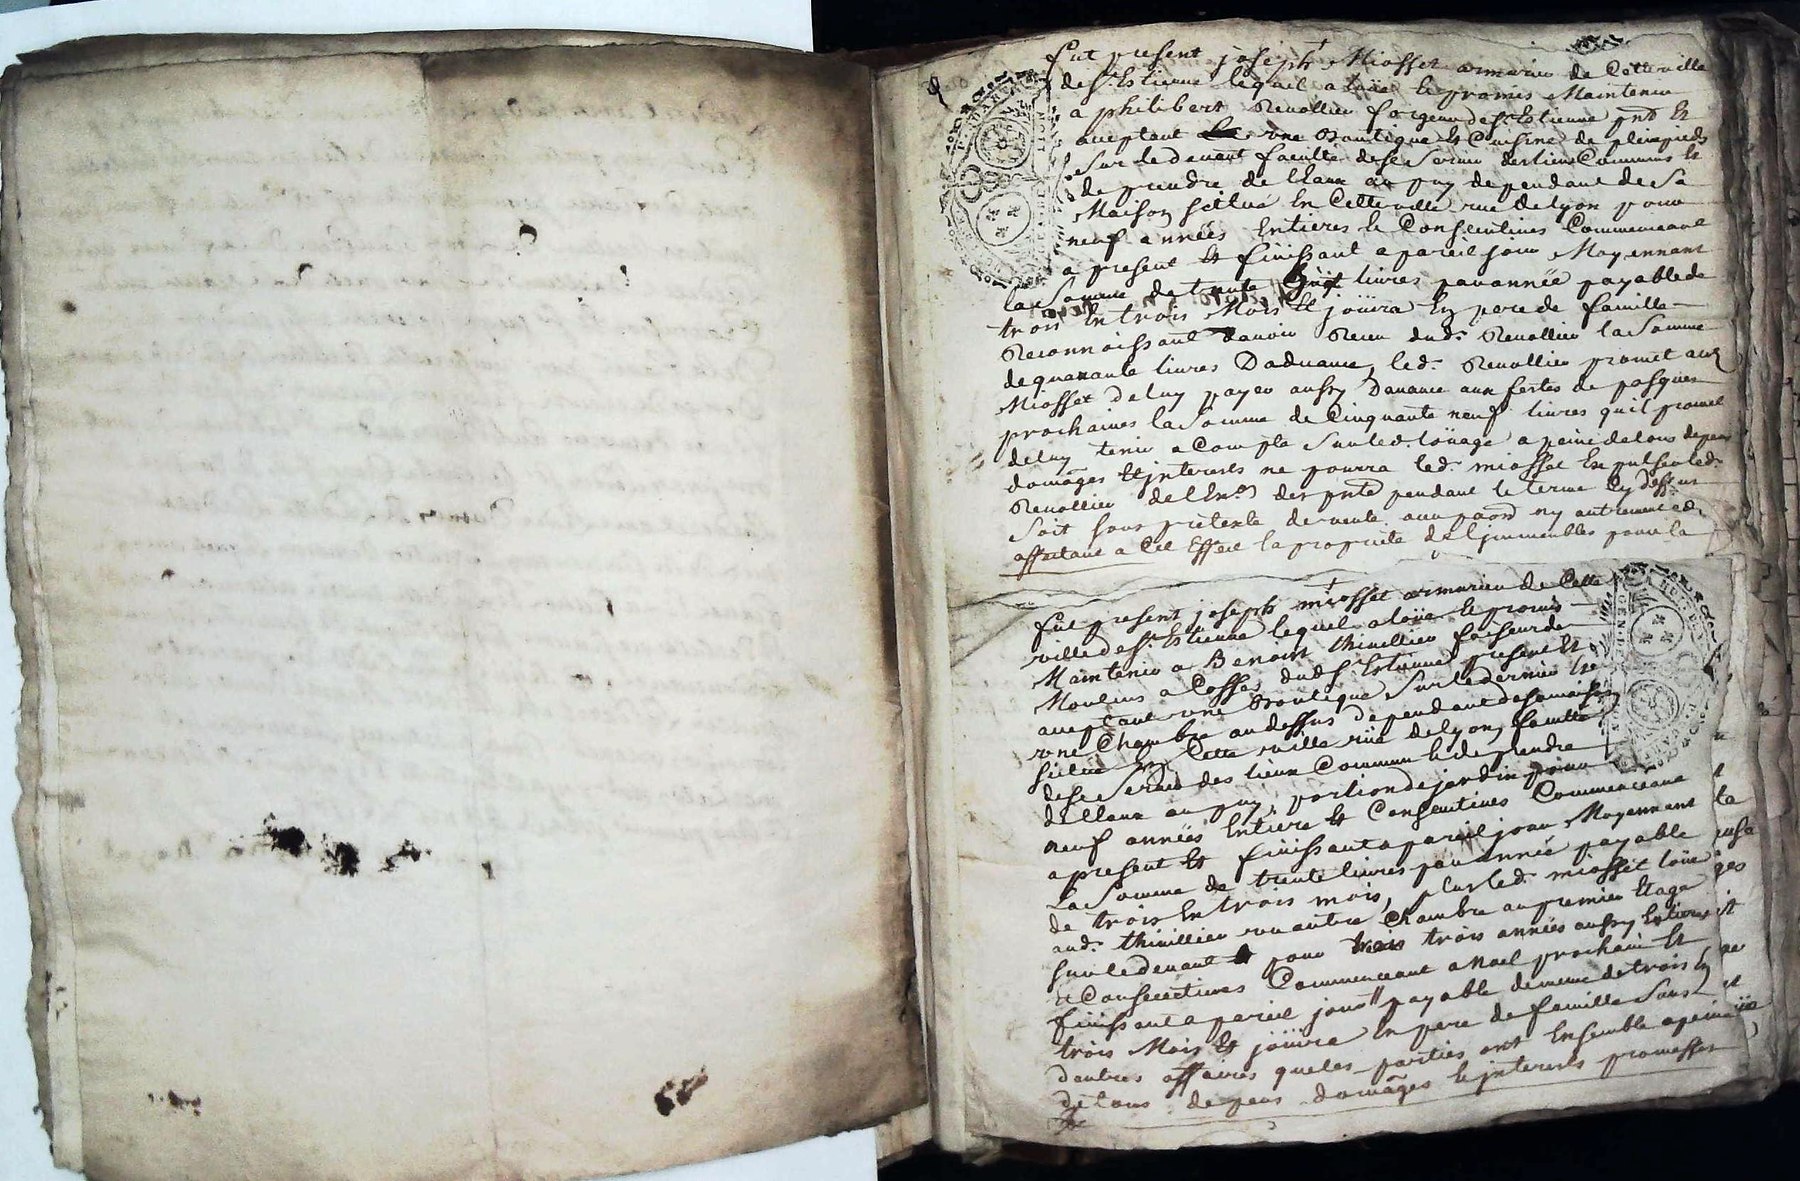 fut present joseph Miosset armurier de Cette ville
de St Estienne lequel a loüé et promis Maintenir
a philibert Revollier forgeur de St Estienne pnt et
aceptant une Boutique et Cuisine de pleinpieds
Sur le devant faculté de se Servir des lieux Communs et
de prendre de lEaux au puy dependant de Sa
Maison scittuée En Cette ville rue de lyon pour
neuf années Entieres et Consecutives Commenceant
a present et finissant a pareil jour Moyennant
la Somme de trente huit livres par année payable de
trois En trois Mois Et joüira En pere de famille
Reconnoissant davoir Receu dud. Revollier la Somme
de quarante livres Dadvance, led. Revollier promet aud.
Miosset de luy payer aussy Davance aux festes de pasques
prochaines la Somme de Cinquante neuf livres quil promet
de luy tenir a Compte Sur led. loüage a peine de tous depens
domãges Et jnterests ne pourra led. miosset Expulser led.
Revollier de pendant le terme Cy dessus
Soit sous pretexte de vente ny autrement
affectant a Cet Effect la proprieté dimmeubles pour la
fut present joseph miosset armurier de Cette
ville de St Estienne lequel a loüé Et promis
Maintenir a Benoist thivillier faiseur de
Moulins a Caffé dud St Estienne present Et
aceptant une Boutique Sur le dernier Et
une Chambre au dessus dependant de sa maison
sittué En Cette ville rüe de lyon, faculté
de se Servir des lieux Commun Et de prendre
de lEaux au puy, portion de jardin pour
neuf années Entiere Et Consecutives Commenceant
a present Et finissant a pareil jour Moyennant
La Somme de trente livres par année payable
de trois En trois mois, plus led. miosset loüe
aud. thivillier un autre Chambre au premier Etage
sur le devant pour trois années aussy Entieres
Et Consecutives Commenceant a Noel prochain Et
finissant a pareil jour payable de meme de trois En
trois Mois Et joüira En pere de famille Sans
dautres affaires que les parties ont Ensemble a peine
de tous depens domãges Et jnterests promesses